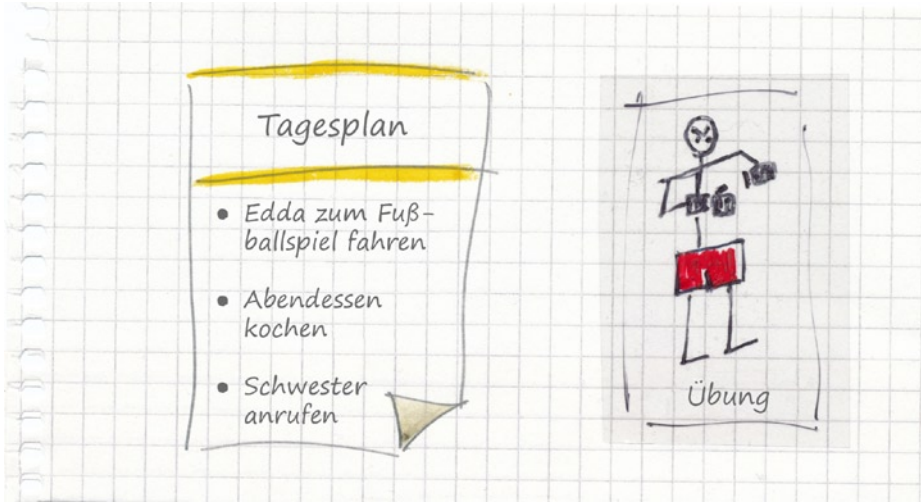 Tagesplan
• Edda zum Fuß-
ballspiel fahren
• Abendessen
kochen
• Schwester
anrufen
Übung